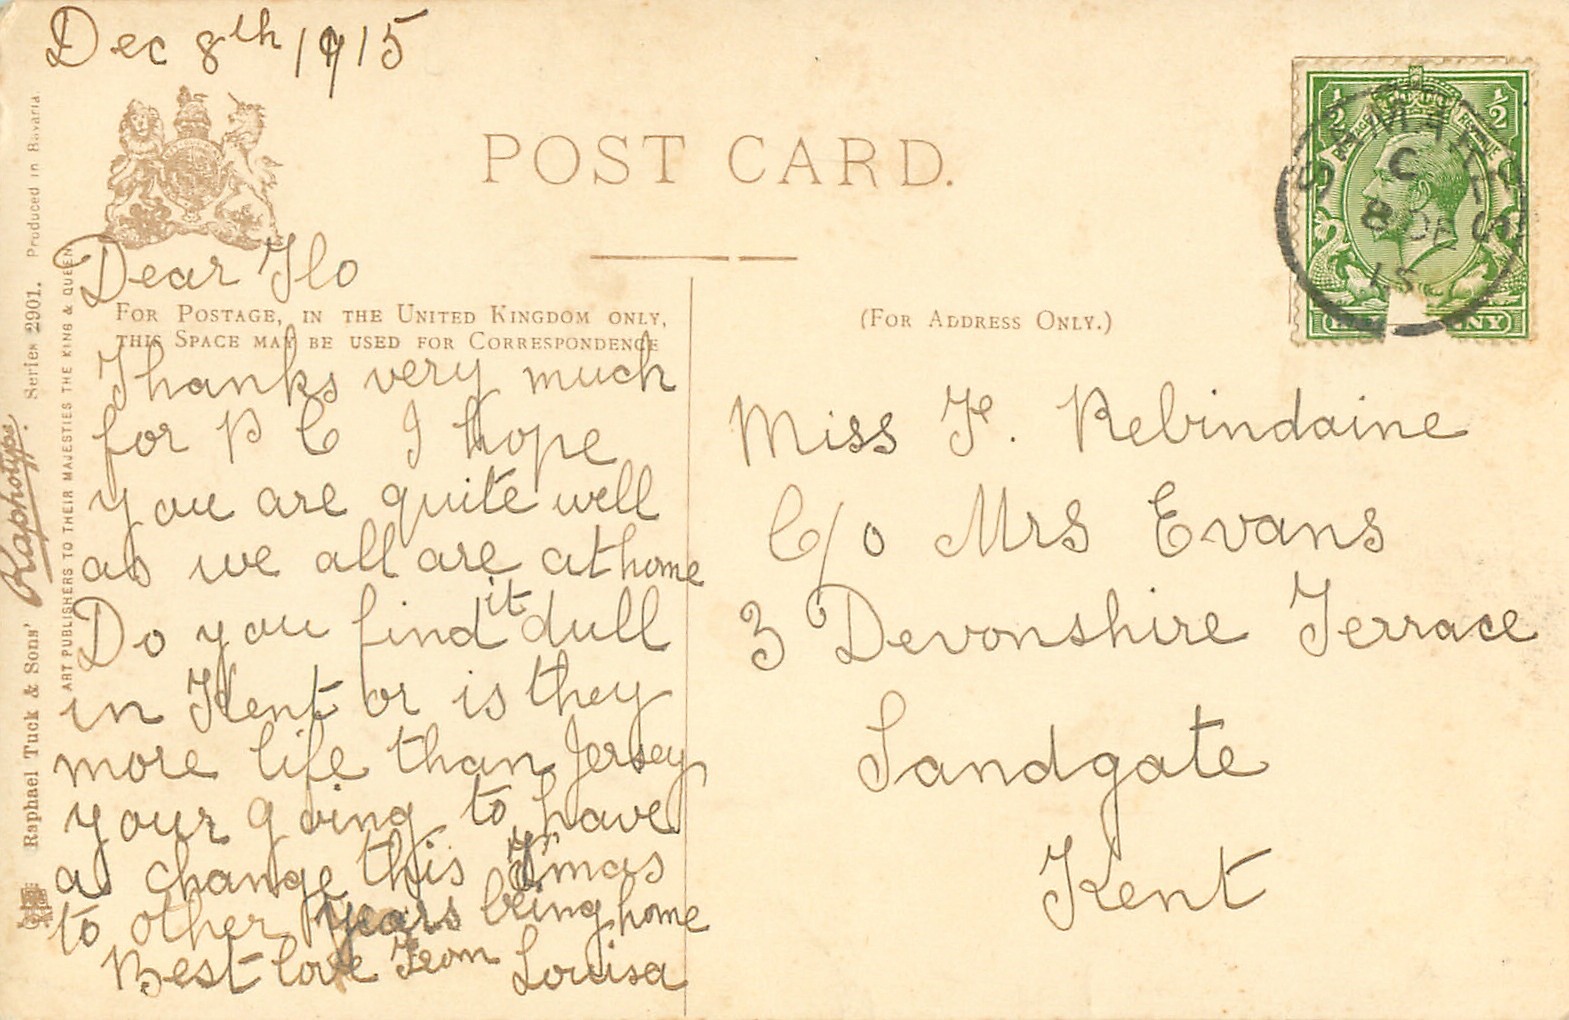 Dec 8th 1915
POST CARD.
Dear Flo
FOR POSTAGE, IN THE UNITED KINGDOM ONLY,
THIS SPACE MAY BE USED FOR CORRESPONDENCE
Thanks very much
for P C I hope
you are quite well
as we all are at home
Do you find it dull
in Kent or is they
more life than Jersey
your going to have
a change this Xmas
to other years being home
Best love From Louisa
(FOR ADDRESS ONLY.)
Miss F. Rebindaine
C/o Mrs Evans
3 Devonshire Terrace
Sandgate
Kent
Raphael Tuck & Sons' Raphotype. Series 2901. Produced in Bavaria.
ART PUBLISHERS TO THEIR MAJESTIES THE KING & QUEEN
1/2 1/2
POSTAGE REVENUE
ST MARTS
C
8 DE
15